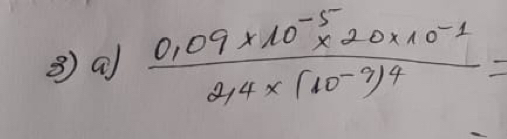 3) a) 0,09 × 10⁻⁵ × 20 × 10⁻¹
2,4 × (10⁻⁹)4 =